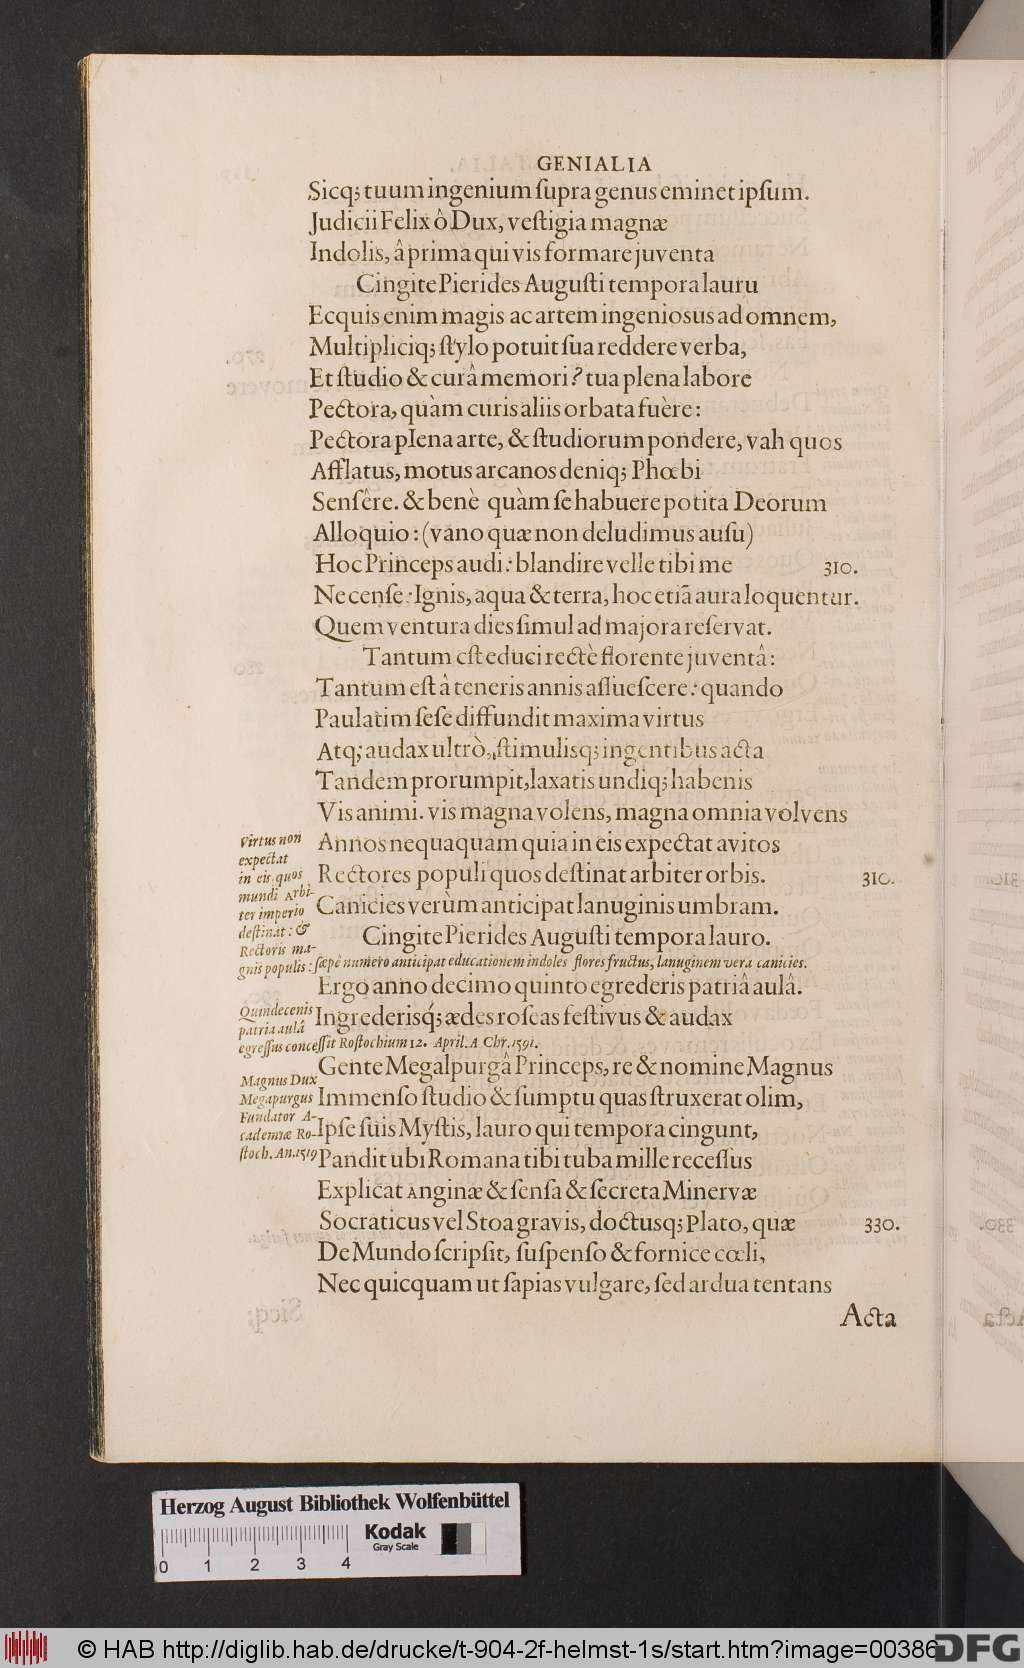 GENIALIA
Sicq; tuum ingenium ſupra genus eminet ipſum.
Judicii Felix ô Dux, veſtigia magnæ
Indolis, â prima qui vis formare juventa
Cingite Pierides Auguſti tempora lauru
Ecquis enim magis ac artem ingeniosus ad omnem,
Multipliciq; ſtylo potuit ſua reddere verba,
Et ſtudio & curâ memori? tua plena labore
Pectora, quàm curis aliis orbata fuère:
Pectora pIena arte, & ſtudiorum pondere, vah quos
Afflatus, motus arcanos deniq; Phœbi
Senſêre. & benè quàm ſe habuere potita Deorum
Alloquio: (vano quæ non deludimus auſu)
Hoc Princeps audi: blandire velle tibi me 310.
Ne cenſe: Ignis, aqua & terra, hoc etiã aura loquentur.
Quem ventura dies ſimul ad majora reſervat.
Tantum eſt educi rectè florente juventâ:
Tantum eſt â teneris annis aſſueſcere: quando
Paulatim ſeſe diffundit maxima virtus
Atq; audax ultrò, ſtimulisq; ingentibus acta
Tandem prorumpit, laxatis undiq; habenis
Vis animi. vis magna volens, magna omnia volvens
Virtus non
expectat
in eis quos
mundi Arbi-
ter imperio
deſtinat: &
Rectoris ma-
gnis populis: ſæpè numero anticipat educationem indoles flores fructus, lanuginem vera canicies.
Annos nequaquam quia in eis expectat avitos
Rectores populi quos deſtinat arbiter orbis. 310.
Canicies verùm anticipat lanuginis umbram.
Cingite Pierides Auguſti tempora lauro.
Ergo anno decimo quinto egrederis patriâ aulâ.
Quindecenis
patria aulâ
egreſſus conceſſit Roſtochium 12. April. A Chr. 1591.
Ingrederisq́; ædes roſeas feſtivus & audax
Gente Megalpurgâ Princeps, re & nomine Magnus
Magnus Dux
Megapurgus
Fundator A-
cademiæ Ro-
ſtoch. An. 1519
Immenſo ſtudio & ſumptu quas ſtruxerat olim,
Ipſe ſuis Myſtis, lauro qui tempora cingunt,
Pandit ubi Romana tibi tuba mille receſſus
Explicat Anginæ & ſenſa & ſecreta Minervæ
Socraticus vel Stoa gravis, doctusq; Plato, quæ 330.
De Mundo ſcripſit, ſuſpenſo & fornice cœli,
Nec quicquam ut ſapias vulgare, ſed ardua tentans
Acta
Herzog August Bibliothek Wolfenbüttel
Kodak
Gray Scale
0 1 2 3 4
© HAB http://diglib.hab.de/drucke/t-904-2f-helmst-1s/start.htm?image=00386
DFG